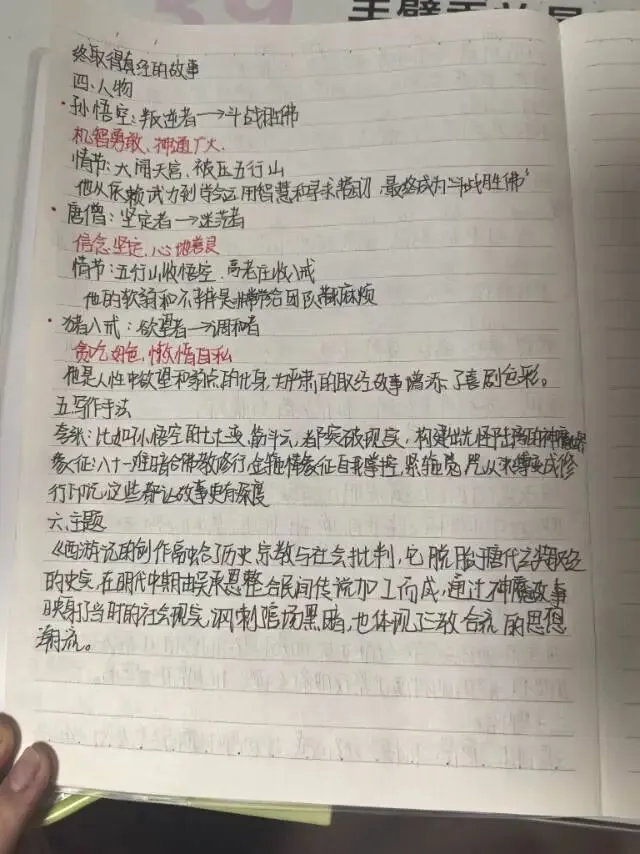 终取得真经的故事
四、人物
·孙悟空：叛逆者→斗战胜佛
机智勇敢、神通广大.
情节：大闹天宫、被压五行山
他从依赖武力到学会运用智慧和寻求帮助，最终成为“斗战胜佛”
·唐僧：坚定者→迷茫者
信念坚定、心地善良
情节：五行山收悟空、高老庄收八戒
他的软弱和不辨是非常给团队带麻烦
·猪八戒：欲望者→调和者
贪吃好色、懒惰自私
他是人性中欲望和弱点的化身，为严肃的取经故事增添了喜剧色彩。
五写作手法
夸张：比如孙悟空的七十二变、筋斗云，都突破现实，构建出光怪陆离的神魔世界
象征：八十一难暗合佛教修行，金箍棒象征自我掌控，紧箍咒从束缚变成修
行印记，这些都让故事更有深度
六、主题
《西游记》的创作融合了历史宗教与社会批判，它脱胎于唐代玄奘取经
的史实，在明代中期由吴承恩整合民间传说加工而成，通过神魔故事
映射了当时的社会现实，讽刺官场黑暗，也体现三教合流的思想
潮流。